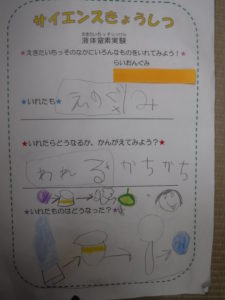 サイエンスきょうしつ
えきたいちっそじっけん
液体窒素実験
★えきたいちっそのなかにいろんなものをいれてみよう！★
らいおんぐみ
★いれたもの★
えのぐ
み
★いれたらどうなるか、かんがえてみよう？★
われる かちかち
★いれたものはどうなった？★